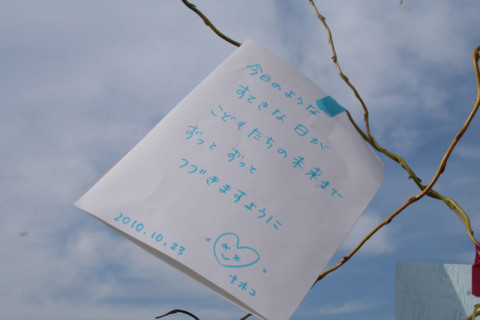 今日のような
すてきな 日が
こどもたちの未来まで
ずっと ずっと
つづきますように
2010.10.23
ナオコ